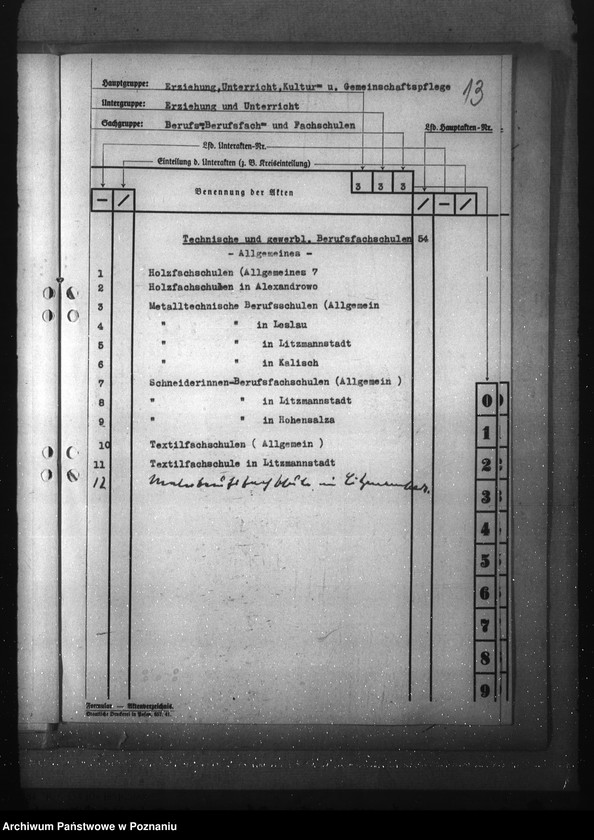 Hauptgruppe: Erziehung,Unterricht,Kultur= u. Gemeinschaftspflege
13
Untergruppe: Erziehung und Unterricht
Sachgruppe: Berufs=Berufsfach= und Fachschulen
Lfd. Hauptakten-Nr.
Lfd. Unterakten-Nr.
Einteilung d. Unterakten (z. B. Kreiseinteilung)
— / Benennung der Akten 3 3 3 / — /
Technische und gewerbl. Berufsfachschulen 54
- Allgemeines -
1 Holzfachschulen (Allgemeines 7
2 Holzfachschulen in Alexandrowo
3 Metalltechnische Berufsschulen (Allgemein
4 " " in Leslau
5 " " in Litzmannstadt
6 " " in Kalisch
7 Schneiderinnen-Berufsfachschulen (Allgemein )
8 " " in Litzmannstadt
9 " " in Hohensalza
10 Textilfachschulen ( Allgemein )
11 Textilfachschule in Litzmannstadt
12 in
0
1
2
3
4
5
6
7
8
9
Formular — Aktenverzeichnis.
Archiwum Państwowe w Poznaniu